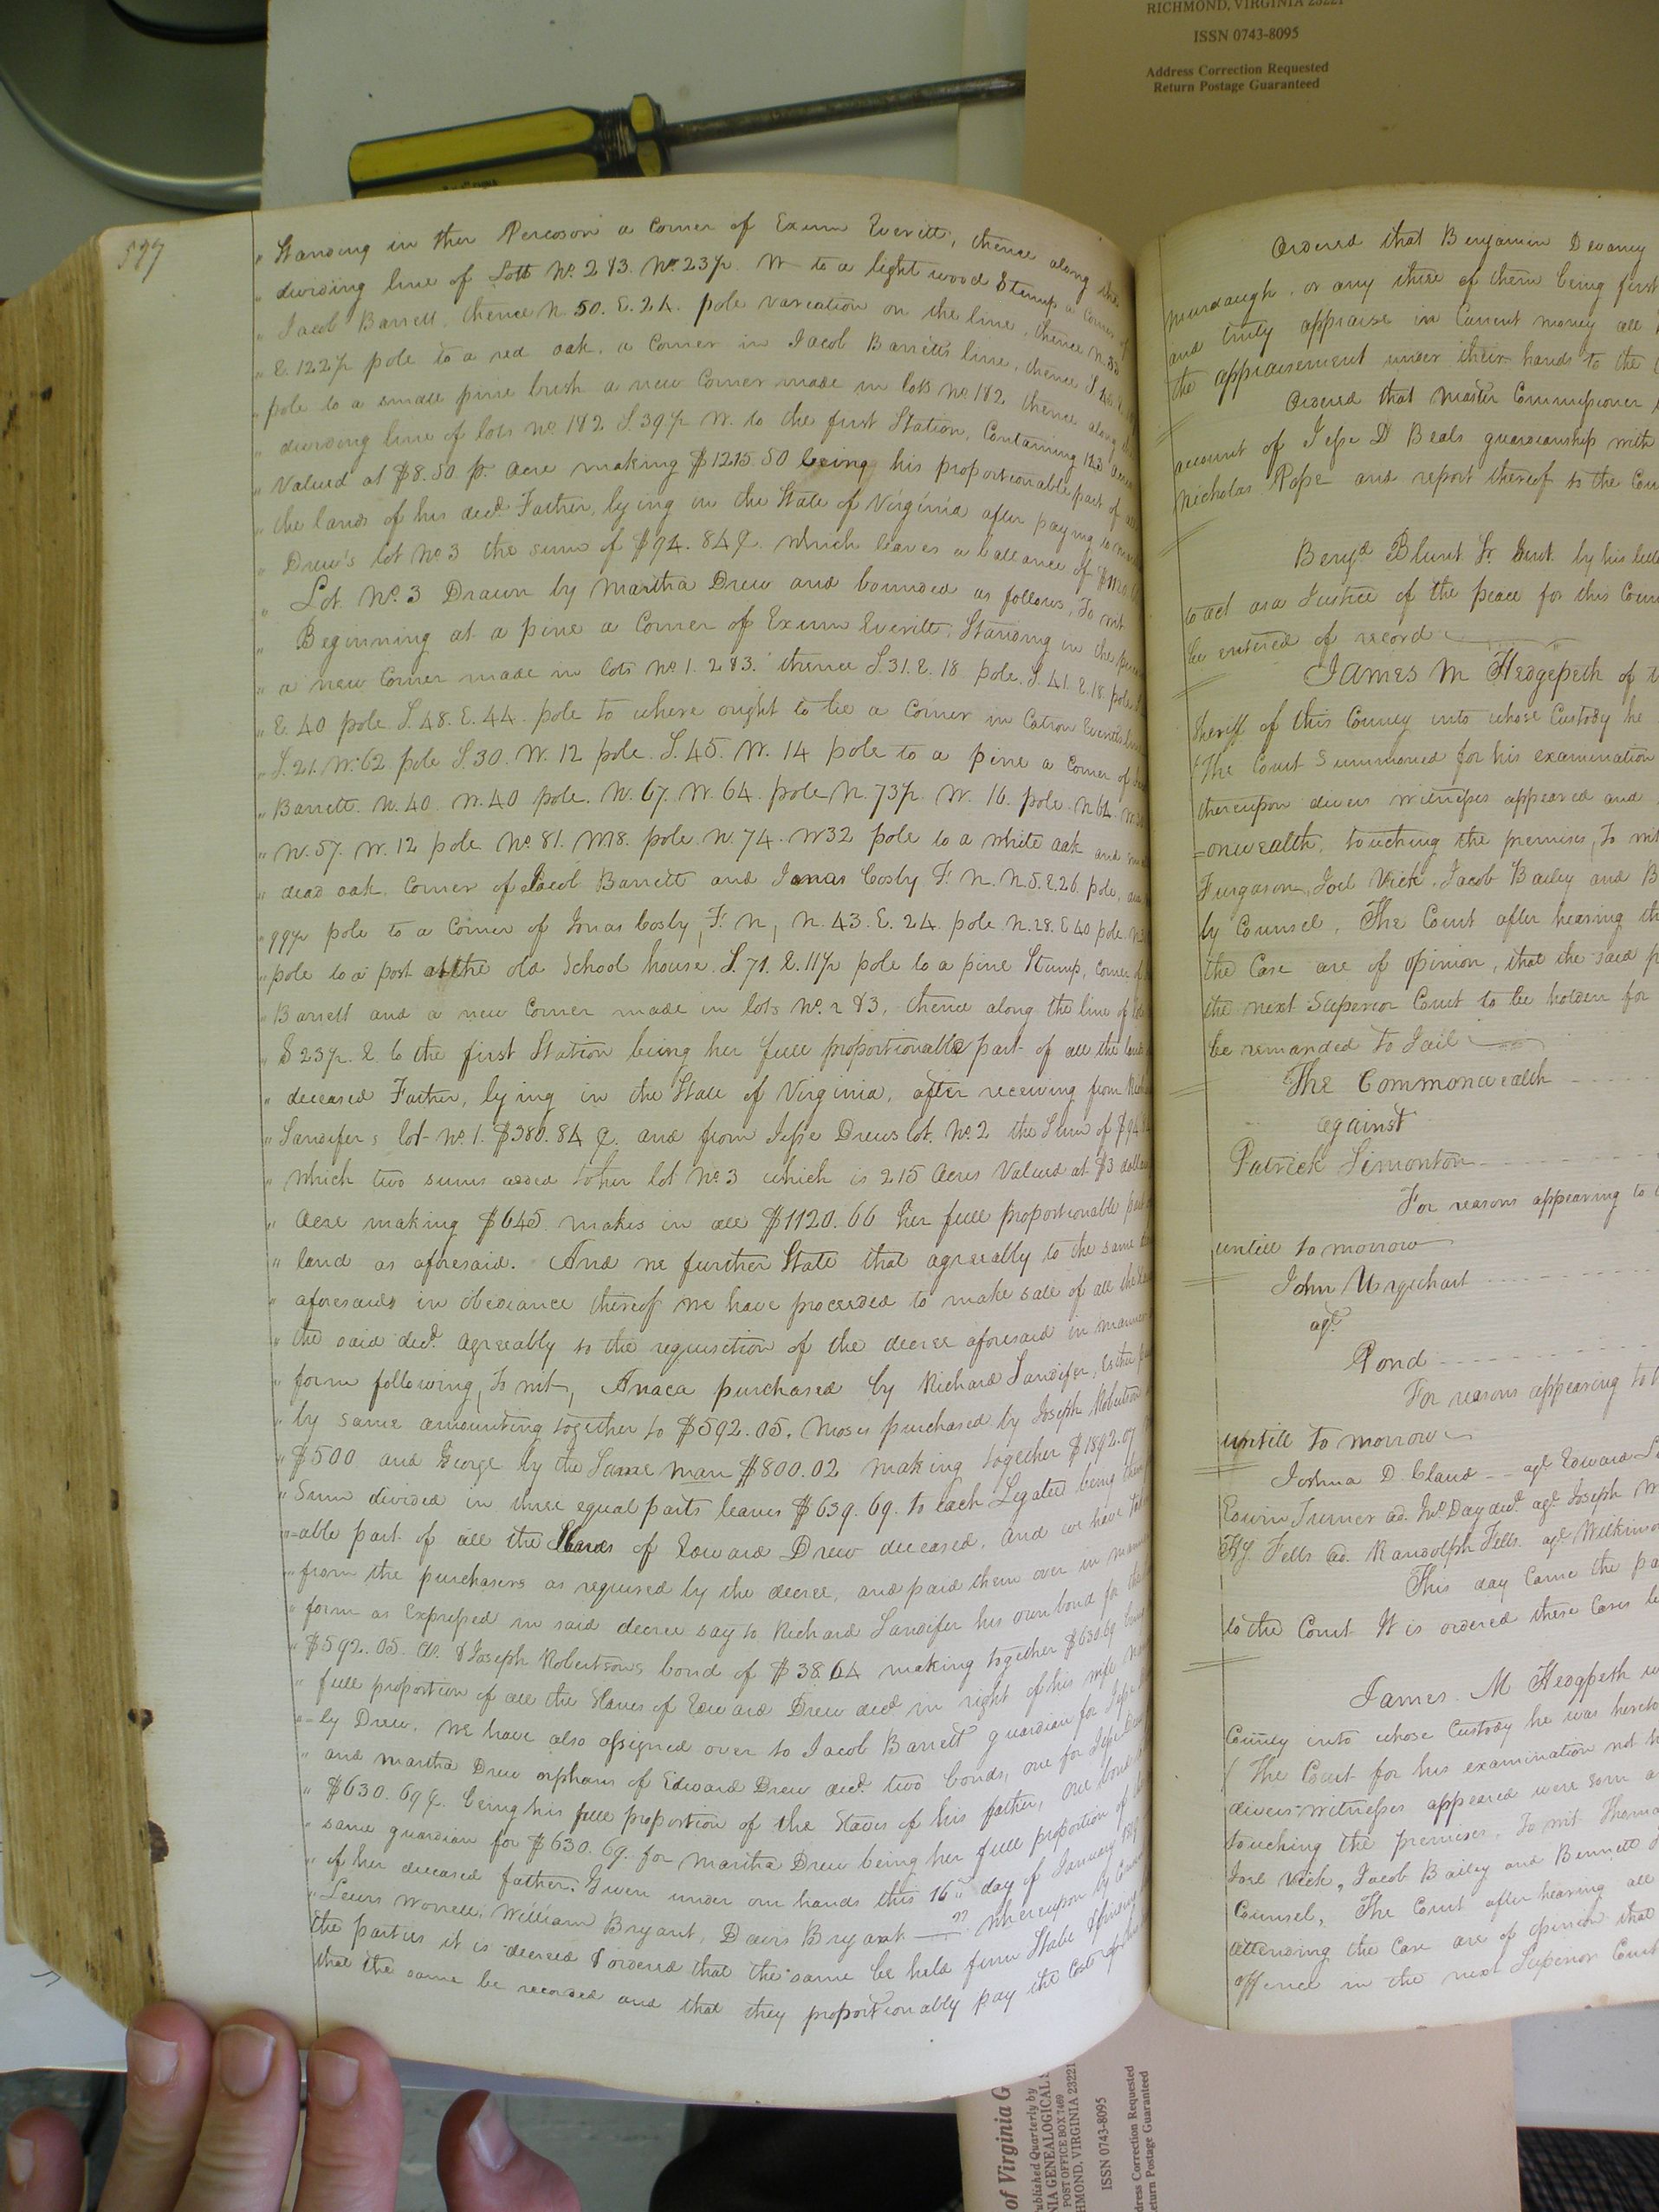 RICHMOND, VIRGINIA 23221
ISSN 0743-8095
Address Correction Requested
Return Postage Guaranteed
577
" Standing in the Percoson a Corner of Exum Everitt, thence along the
" dividing line of Lots No. 2 & 3. No. 23½ W to a light wood Stump a Corner of
" Jacob Barrett, thence N. 50. E. 24. pole variation on the line, thence N. 35
" E. 122½ pole to a red oak, a Corner in Jacob Barretts line, thence S.
" pole to a small pine bush a new Corner made in lots No. 1 & 2 thence along the
" dividing line of lots No. 1 & 2 S. 39½ W. to the first Station, Containing 143 acres
" Valued at $8.50 pr. Acre making $1215.50 being his proportionable part of all
" the lands of his decd. Father, lying in the State of Virginia after paying to
" Drew's lot No. 3 the sum of $94.84 C. which leaves a ballance of
" Lot No. 3 Drawn by Martha Drew and bounded as follows, To wit
" Beginning at a pine a Corner of Exum Everitt, Standing in the
" a new Corner made in lots No. 1. 2 & 3. thence S. 31. E. 18 pole. S. 41. E. 18. pole
" E. 40 pole S. 48. E. 44. pole to where ought to be a Corner in Catron Everitts line
" S. 21. W. 62. pole S. 30. W. 12 pole. S. 45. W. 14 pole to a pine a Corner of
" Barrett. N. 40. W. 40 pole. N. 67. W. 64. pole N. 73½. W. 16. pole. N 64. W.
" N. 57. W. 12 pole No. 81. W18. pole N. 74. W32 pole to a white oak and
" dead oak. Corner of Jacob Barrett and Jonas Cosby F. N. N. 5. E. 26. pole,
" 99½ pole to a Corner of Jonas Cosby, F. N, N. 43. E. 24. pole N. 28. E 40 pole.
" pole to a post at the old School house. S. 71. E. 11½ pole to a pine Stump, Corner of
" Barrett and a new Corner made in lots No. 2 & 3, thence along the line of
" S 23½. E to the first Station being her full proportionable part of all the lands
" deceased Father, lying in the State of Virginia, after receiving from
" Sandifers lot No. 1. $380.84 C. and from Jesse Drews lot. No. 2 the Sum of $94
" which two sums added to her lot No. 3 which is 215 Acres Valued at $3 dollars
" Acre making $645. makes in all $1120.66 her full proportionable
" land as aforesaid. And we further State that agreeably to the same
" aforesaid in obediance thereof we have proceeded to make sale of all the
" the said decd. agreeably to the requisition of the decree aforesaid in manner
" form following, To wit, Anaca purchased by Richard Sandifer,
" by same amounting together to $592.05. Moses purchased by Joseph Robertson
" $500 and George by the Same man $800.02 making together $1892.07
" Sum divided in three equal parts leaves $639.69. to each Legatee being their
"=able part of all the Slaves of Edward Drew deceased, and we have
" from the purchasers as required by the decree, and paid them over in
" form as Expressed in said decree say to Richard Sandifer his own bond for the
" $592.05. & Joseph Robertsons bond of $38.64 making together $630.69
" full proportion of all the Slaves of Edward Drew decd. in right of his wife
"=ly Drew. We have also assigned over to Jacob Barrett guardian for Jesse
" and Martha Drew orphans of Edward Drew decd. two bonds, one for Jesse
" $630.69 C. being his full proportion of the Slaves of his father, one bond
" same guardian for $630.69. for Martha Drew being her full proportion of
" of her deceased father. Given under our hands this 16th day of January
" Lewis Worrell, William Bryant, Davis Bryant Whereupon by
the parties it is decreed & ordered that the same be held firm Stable &
that the same be recorded and that they proportionably pay the Costs of
Ordered that Benjamin Devaney
Murdaugh, or any three of them being first
and truly appraise in Current money all
the appraisement under their hands to the
Ordered that Master Commissioner
account of Jesse D Beals guardianship with
Nicholas Pope and report thereof to the Cou
Benjn. Blunt Sr. Gent. by his lette
to act as a Justice of the peace for this Coun
be entered of record
James M Hedgepeth of
Sheriff of this County into whose Custody he
The Court Summoned for his examination
thereupon divers witnesses appeared and
=onwealth, touching the premises, To wit
Furgason, Joel Vick, Jacob Bailey and B
by Counsel, The Court after hearing th
the Case are of opinion, that the said p
the next Superior Court to be holden for
be remanded to Jail
The Commonwealth
against
Patrick Simonton
For reasons appearing to
untill to morrow
John Urquhart
agt.
Pond
For reasons appearing to
untill to morrow
Joshua D. Claud agt Edward
Edwin Turner ad. Jno. Day decd. agt Joseph
Fells ad. Randolph Fells. agt Wilkinson
This day Came the pa
to the Court It is ordered these Cases
James. M Hedgpeth
County into whose Custody he was hereto
The Court for his examination not
divers witnesses appeared were sorn
touching the premises, To wit Thoma
Joel Vick, Jacob Bailey and Bennett
Counsel, The Court after hearing all
attending the Case are of opinion that
offence in the next Superior Court
of Virginia G
Published Quarterly by
VIRGINIA GENEALOGICAL S
POST OFFICE BOX 7469
RICHMOND, VIRGINIA 23221
ISSN 0743-8095
Address Correction Requested
Return Postage Guaranteed